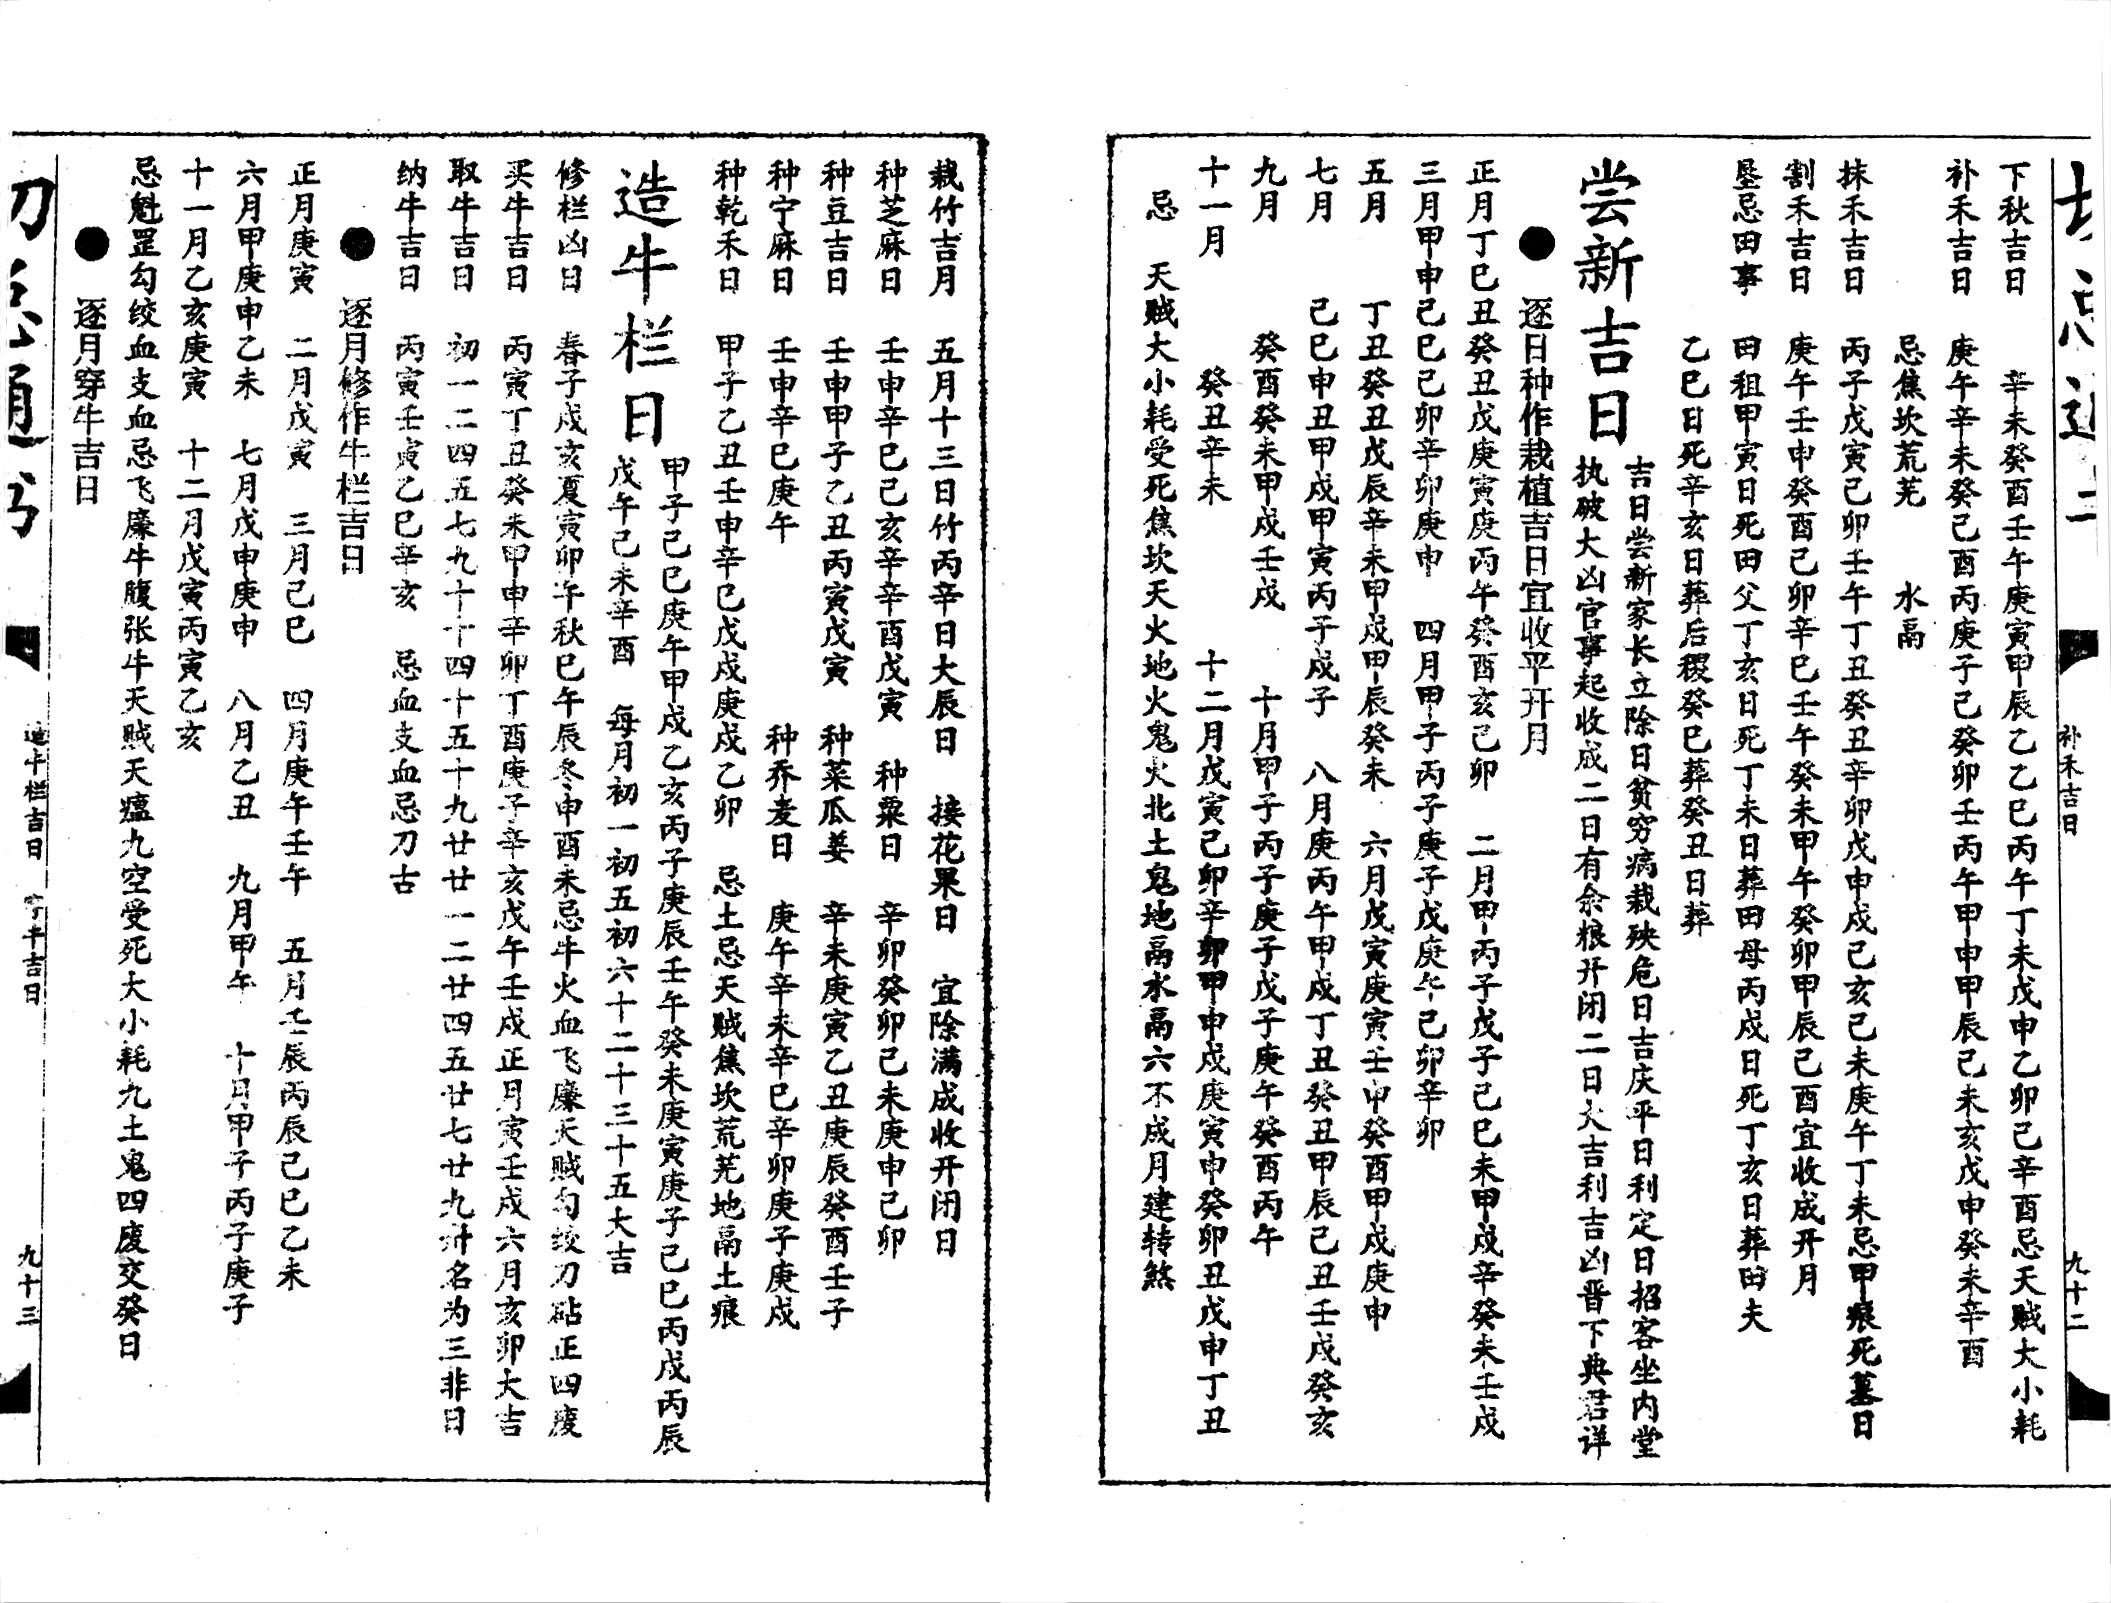 补禾吉日
九十二
下秋吉日　辛未癸酉壬午庚寅甲辰乙乙巳丙午丁未戊申乙卯己辛酉忌天贼大小耗
补禾吉日　庚午辛未癸己酉丙庚子己癸卯壬丙午甲申甲辰己未亥戊申癸未辛酉
忌焦坎荒芜　水鬲
抹禾吉日　丙子戊寅己卯壬午丁丑癸丑辛卯戊申戌己亥己未庚午丁未忌甲痕死墓日
割禾吉日　庚午壬申癸酉己卯辛巳壬午癸未甲午癸卯甲辰己酉宜收成开月
垦忌田事　田祖甲寅日死田父丁亥日死丁未日葬田母丙戌日死丁亥日葬田夫
乙巳日死辛亥日葬后稷癸巳葬癸丑日葬
尝新吉日
吉日尝新家长立除日贫穷病栽殃危日吉庆平日利定日招客坐内堂
执破大凶官事起收成二日有余粮开闭二日大吉利吉凶晋下典君详
●逐日种作栽植吉日宜收平开月
正月丁巳丑癸丑戊庚寅庚丙午癸酉亥己卯　二月甲丙子戊子己巳未甲戌辛癸未壬戌
三月甲申己巳己卯辛卯庚申　四月甲子丙子庚子戊庚午己卯辛卯
五月　丁丑癸丑戊辰辛未甲戌甲辰癸未　六月戊寅庚寅壬申癸酉甲戌庚申
七月　己巳申丑甲戌甲寅丙子戌子　八月庚丙午甲戌丁丑癸丑甲辰己丑壬戌癸亥
九月　癸酉癸未甲戌壬戌　十月甲子丙子庚子戊子庚午癸酉丙午
十一月　癸丑辛未　十二月戊寅己卯辛卯甲申戌庚寅申癸卯丑戊申丁丑
忌　天贼大小耗受死焦坎天火地火鬼火北土鬼地鬲水鬲六不成月建转煞
栽竹吉月　五月十三日竹丙辛日大辰日　接花果日　宜除满成收开闭日
种芝麻日　壬申辛巳己亥辛辛酉戊寅　种粟日　辛卯癸卯己未庚申己卯
种豆吉日　壬申甲子乙丑丙寅戊寅　种菜瓜姜　辛未庚寅乙丑庚辰癸酉壬子
种宁麻日　壬申辛巳庚午　种乔麦日　庚午辛未辛巳辛卯庚子庚戌
种乾禾日　甲子乙丑壬申辛巳戊戌庚戌乙卯　忌土忌天贼焦坎荒芜地鬲土痕
造牛栏日
甲子己巳庚午甲戌乙亥丙子庚辰壬午癸未庚寅庚子己巳丙戌丙辰
戊午己未辛酉　每月初一初五初六十二十三十五大吉
修栏凶日　春子戌亥夏寅卯午秋巳午辰冬申酉未忌牛火血飞廉天贼勾绞刀砧正四废
买牛吉日　丙寅丁丑癸未甲申辛卯丁酉庚子辛亥戊午壬戌正月寅壬戌六月亥卯大吉
取牛吉日　初一二四五七九十十四十五十九廿廿一二廿四五廿七廿九卅名为三非日
纳牛吉日　丙寅壬寅乙巳辛亥　忌血支血忌刀古
●逐月修作牛栏吉日
正月庚寅　二月戊寅　三月己巳　四月庚午壬午　五月壬辰丙辰己巳乙未
六月甲庚申乙未　七月戊申庚申　八月乙丑　九月甲午　十月甲子丙子庚子
十一月乙亥庚寅　十二月戊寅丙寅乙亥
忌魁罡勾绞血支血忌飞廉牛腹张牛天贼天瘟九空受死大小耗九土鬼四废交癸日
●逐月穿牛吉日
造牛栏吉日　穿牛吉日
九十三